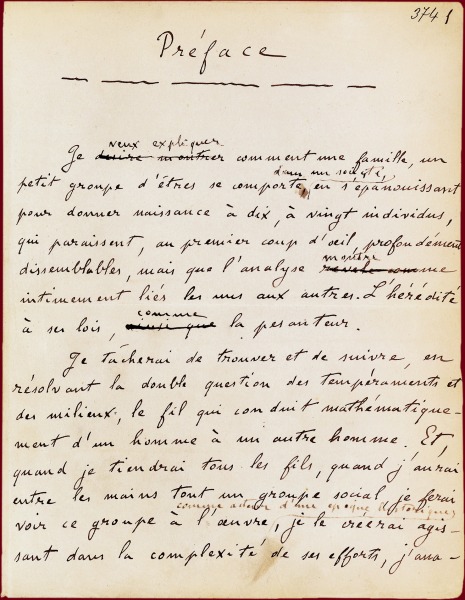 374
Préface
Je veux expliquer comment une famille, un
petit groupe d'êtres se comporte dans une société, en s'épanouissant
pour donner naissance à dix, à vingt individus,
qui paraissent, au premier coup d'œil, profondément
dissemblables, mais que l'analyse montre comme
intimement liés les uns aux autres. L'hérédité
à ses lois, comme la pesanteur.
Je tâcherai de trouver et de suivre, en
résolvant la double question des tempéraments et
des milieux, le fil qui conduit mathématique-
ment d'un homme à un autre homme. Et,
quand je tiendrai tous les fils, quand j'aurai
entre les mains tout un groupe social, je ferai
voir ce groupe à l'œuvre, comme acteur d'une époque historique, je le créerai agis-
sant dans la complexité de ses efforts, j'ana-